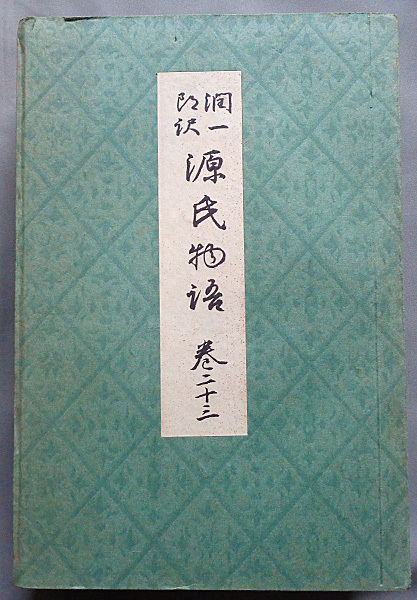 潤一
郎訳
源氏物語 巻二十三